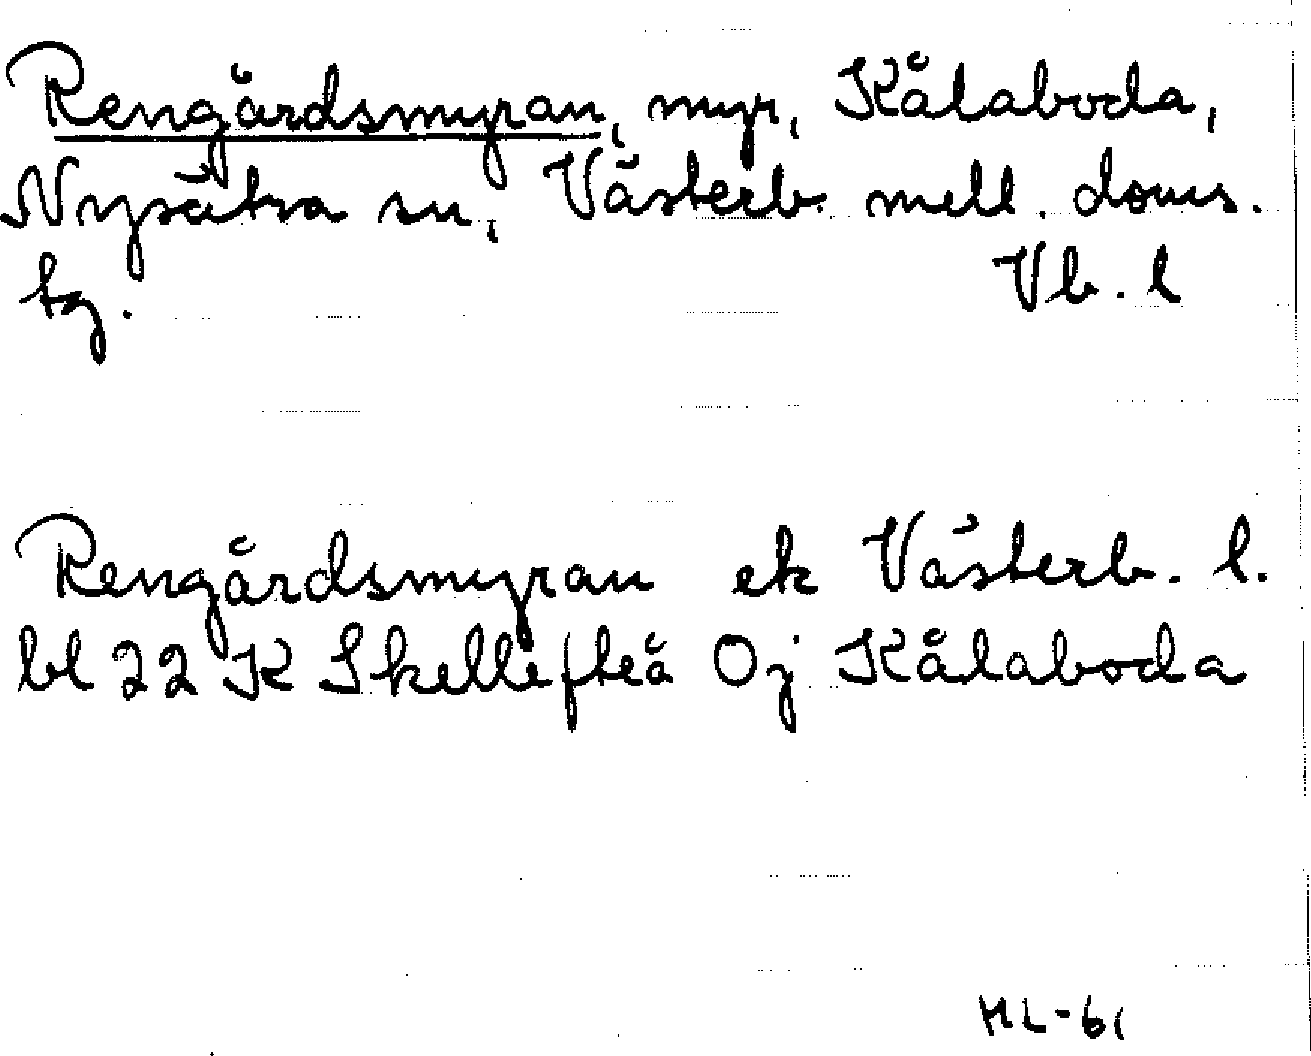 Rengårdsmyran, myr, Kålaboda,
Nysätra sn, Västerb. mell. doms.
tg. Vb. l
Rengårdsmyran ek Västerb. l.
bl 22 K Skellefteå Oj Kålaboda
HL-61